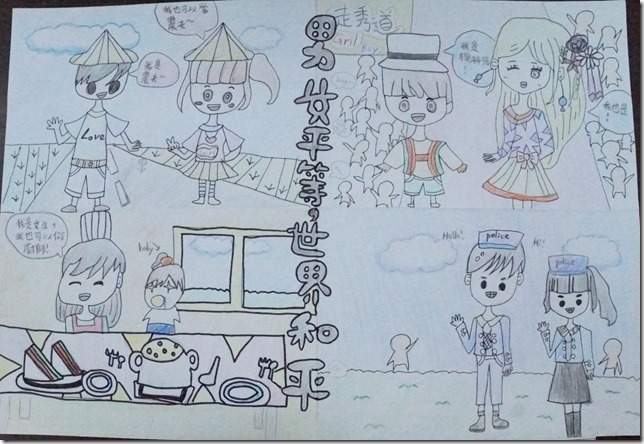 我也可以當
農夫~
我是
農夫~
Love
走秀道
girl boy
我是
我也是!
男女平等,世界和平
我是女生,
也可以做
廚師!
baby
police
Hello!
Hi!
police